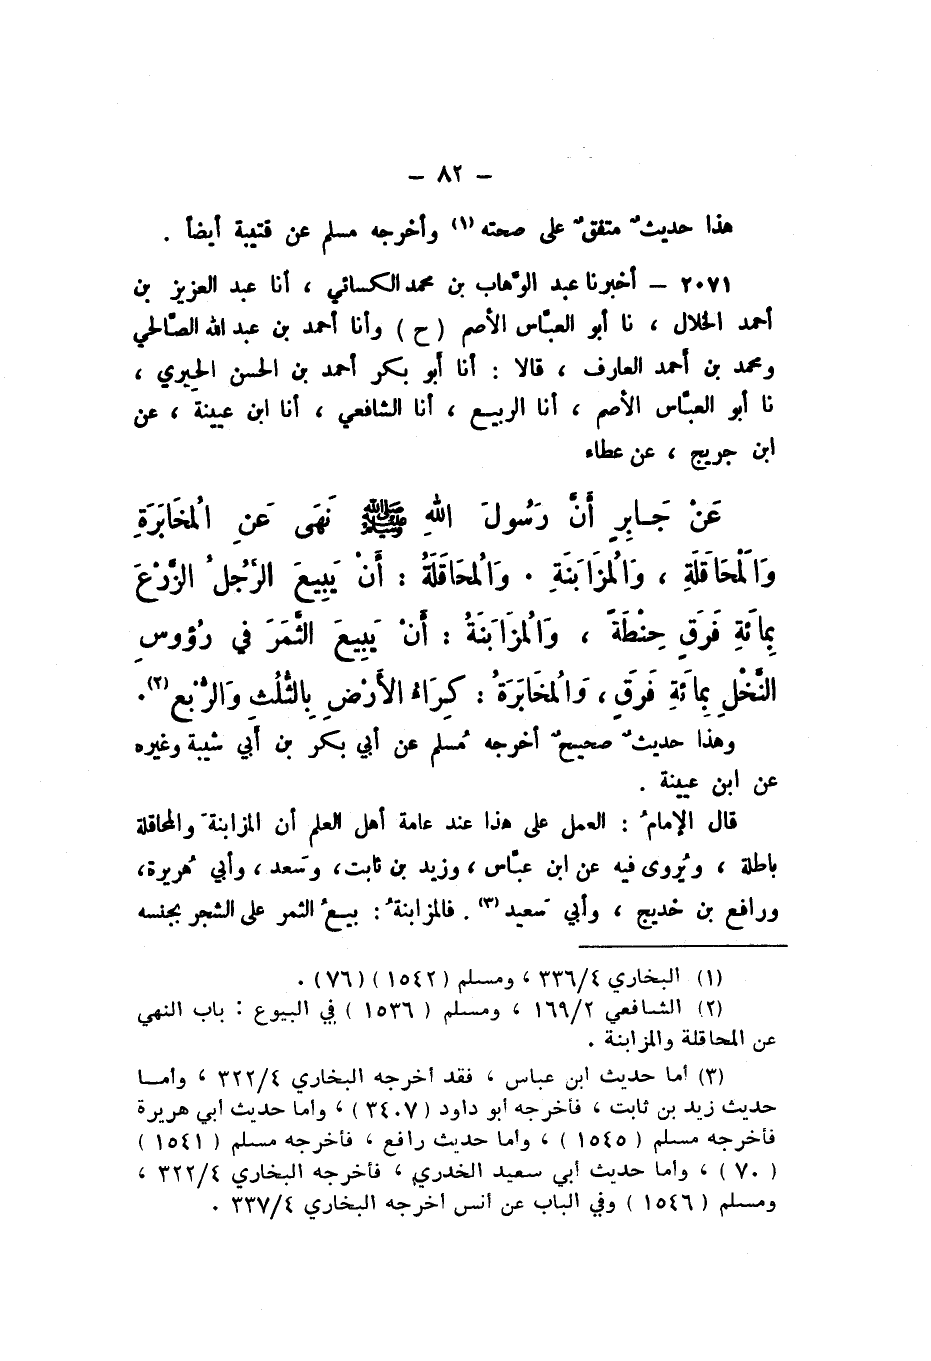 - ٨٢ -
هذا حديثٌ متفقٌ على صحته (١) وأخرجه مسلم عن قتيبة أيضاً .
٢٠٧١ – أخبرنا عبد الوهّاب بن محمد الكسائي ، أنا عبد العزيز بن
أحمد الخلال ، نا أبو العبّاس الأصم ( ح ) وأنا أحمد بن عبد الله الصّالحي
ومحمد بن أحمد العارف ، قالا : أنا أبو بكر أحمد بن الحسن الحِيري ،
نا أبو العبّاس الأصم ، أنا الربيع ، أنا الشافعي ، أنا ابن عيينة ، عن
ابن جريج ، عن عطاء
عَنْ جَابِرٍ أَنَّ رَسُولَ اللهِ ﷺ نَهَى عَنِ الْمُخَابَرَةِ
وَالْمُحَاقَلَةِ ، وَالْمُزَابَنَةِ . وَالْمُحَاقَلَةُ : أَنْ يَبِيعَ الرَّجُلُ الزَّرْعَ
بِمائَةِ فَرَقٍ حِنْطَةً ، وَالْمُزَابَنَةُ : أَنْ يَبِيعَ الثَّمَرَ في رُؤُوسِ
النَّخْلِ بِمائَةِ فَرَقٍ ، وَالْمُخَابَرَةُ : كِرَاءُ الأَرْضِ بِالثُّلُثِ وَالرُّبْعِ (٢).
وهذا حديثٌ صحيحٌ أخرجه مُسلم عن أبي بكر بن أبي شيبة وغيره
عن ابن عيينة .
قال الإمامُ : العمل على هذا عند عامة أهل العلم أن المزابنةَ والمحاقلة
باطلة ، ويُروى فيه عن ابن عبّاس ، وزيد بن ثابت، وسَعد ، وأبي هُريرة،
ورافع بن خديج ، وأبي سَعيد (٣) . فالمزابنةُ : بيعُ الثمر على الشجر بجنسه
(١) البخاري ٣٣٦/٤ ، ومسلم (١٥٤٢) (٧٦) .
(٢) الشافعي ١٦٩/٢ ، ومسلم ( ١٥٣٦ ) في البيوع : باب النهي
عن المحاقلة والمزابنة .
(٣) أما حديث ابن عباس ، فقد أخرجه البخاري ٣٢٢/٤ ، وأما
حديث زيد بن ثابت ، فأخرجه أبو داود (٣٤٠٧) ، وأما حديث أبي هريرة
فأخرجه مسلم ( ١٥٤٥ ) ، وأما حديث رافع ، فأخرجه مسلم ( ١٥٤١ )
( ٧٠ ) ، وأما حديث أبي سعيد الخدري ، فأخرجه البخاري ٣٢٢/٤ ،
ومسلم ( ١٥٤٦ ) وفي الباب عن أنس أخرجه البخاري ٣٣٧/٤ .